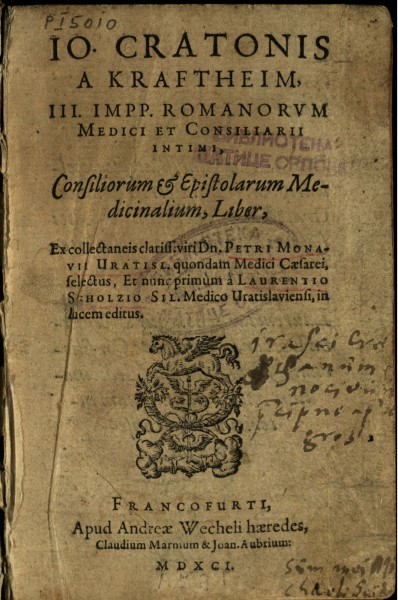 PI5010
IO. CRATONIS
A KRAFTHEIM,
III. IMPP. ROMANORVM
MEDICI ET CONSILIARII
INTIMI,
Consiliorum & Epistolarum Me-
dicinalium, Liber,
Ex collectaneis clariss. viri Dn. PETRI MONA-
VII URATISL. quondam Medici Cæsarei,
selectus, Et nunc primùm à LAURENTIO
SCHOLZIO SIL. Medico Uratislaviensi, in
lucem editus.
FRANCOFURTI,
Apud Andreæ Wecheli hæredes,
Claudium Marnium & Joan. Aubrium:
MDXCI.